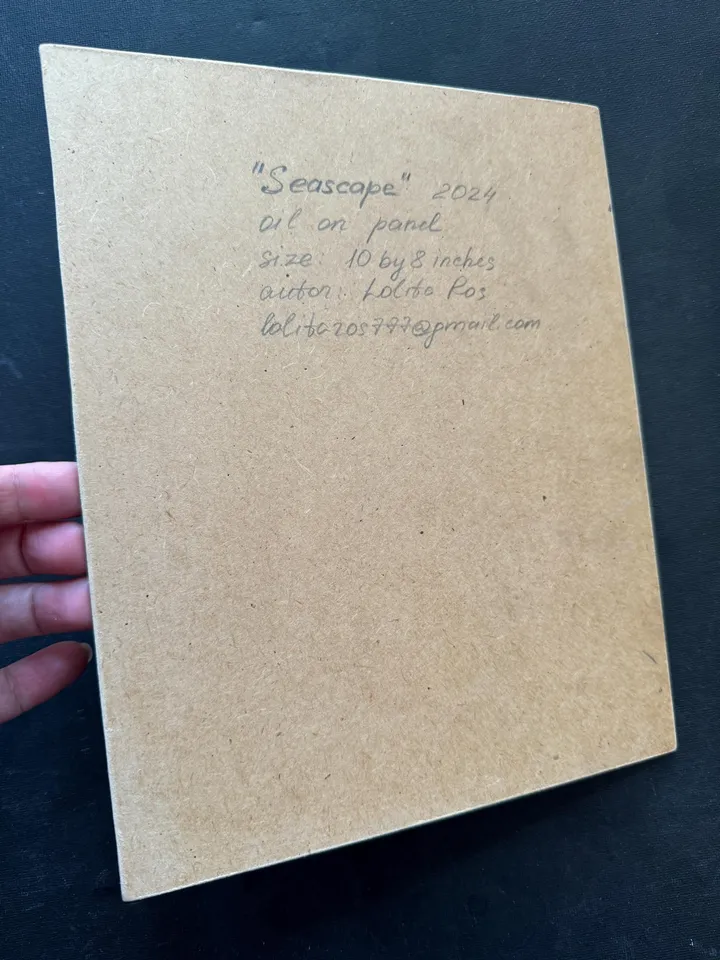 "Seascape" 2024
oil on panel
size: 10 by 8 inches
autor: Lolita Ros
lolitaros777@gmail.com